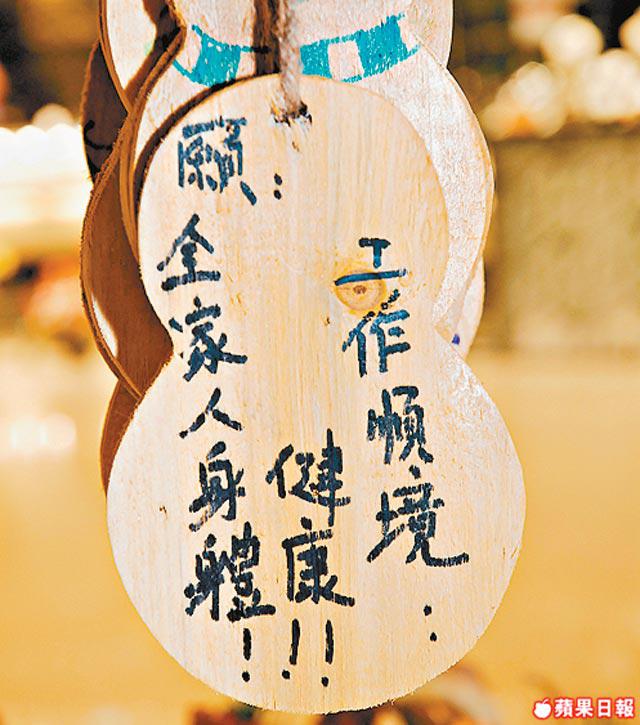 願：
全家人身體
健康!!!!
工作順境：
蘋果日報